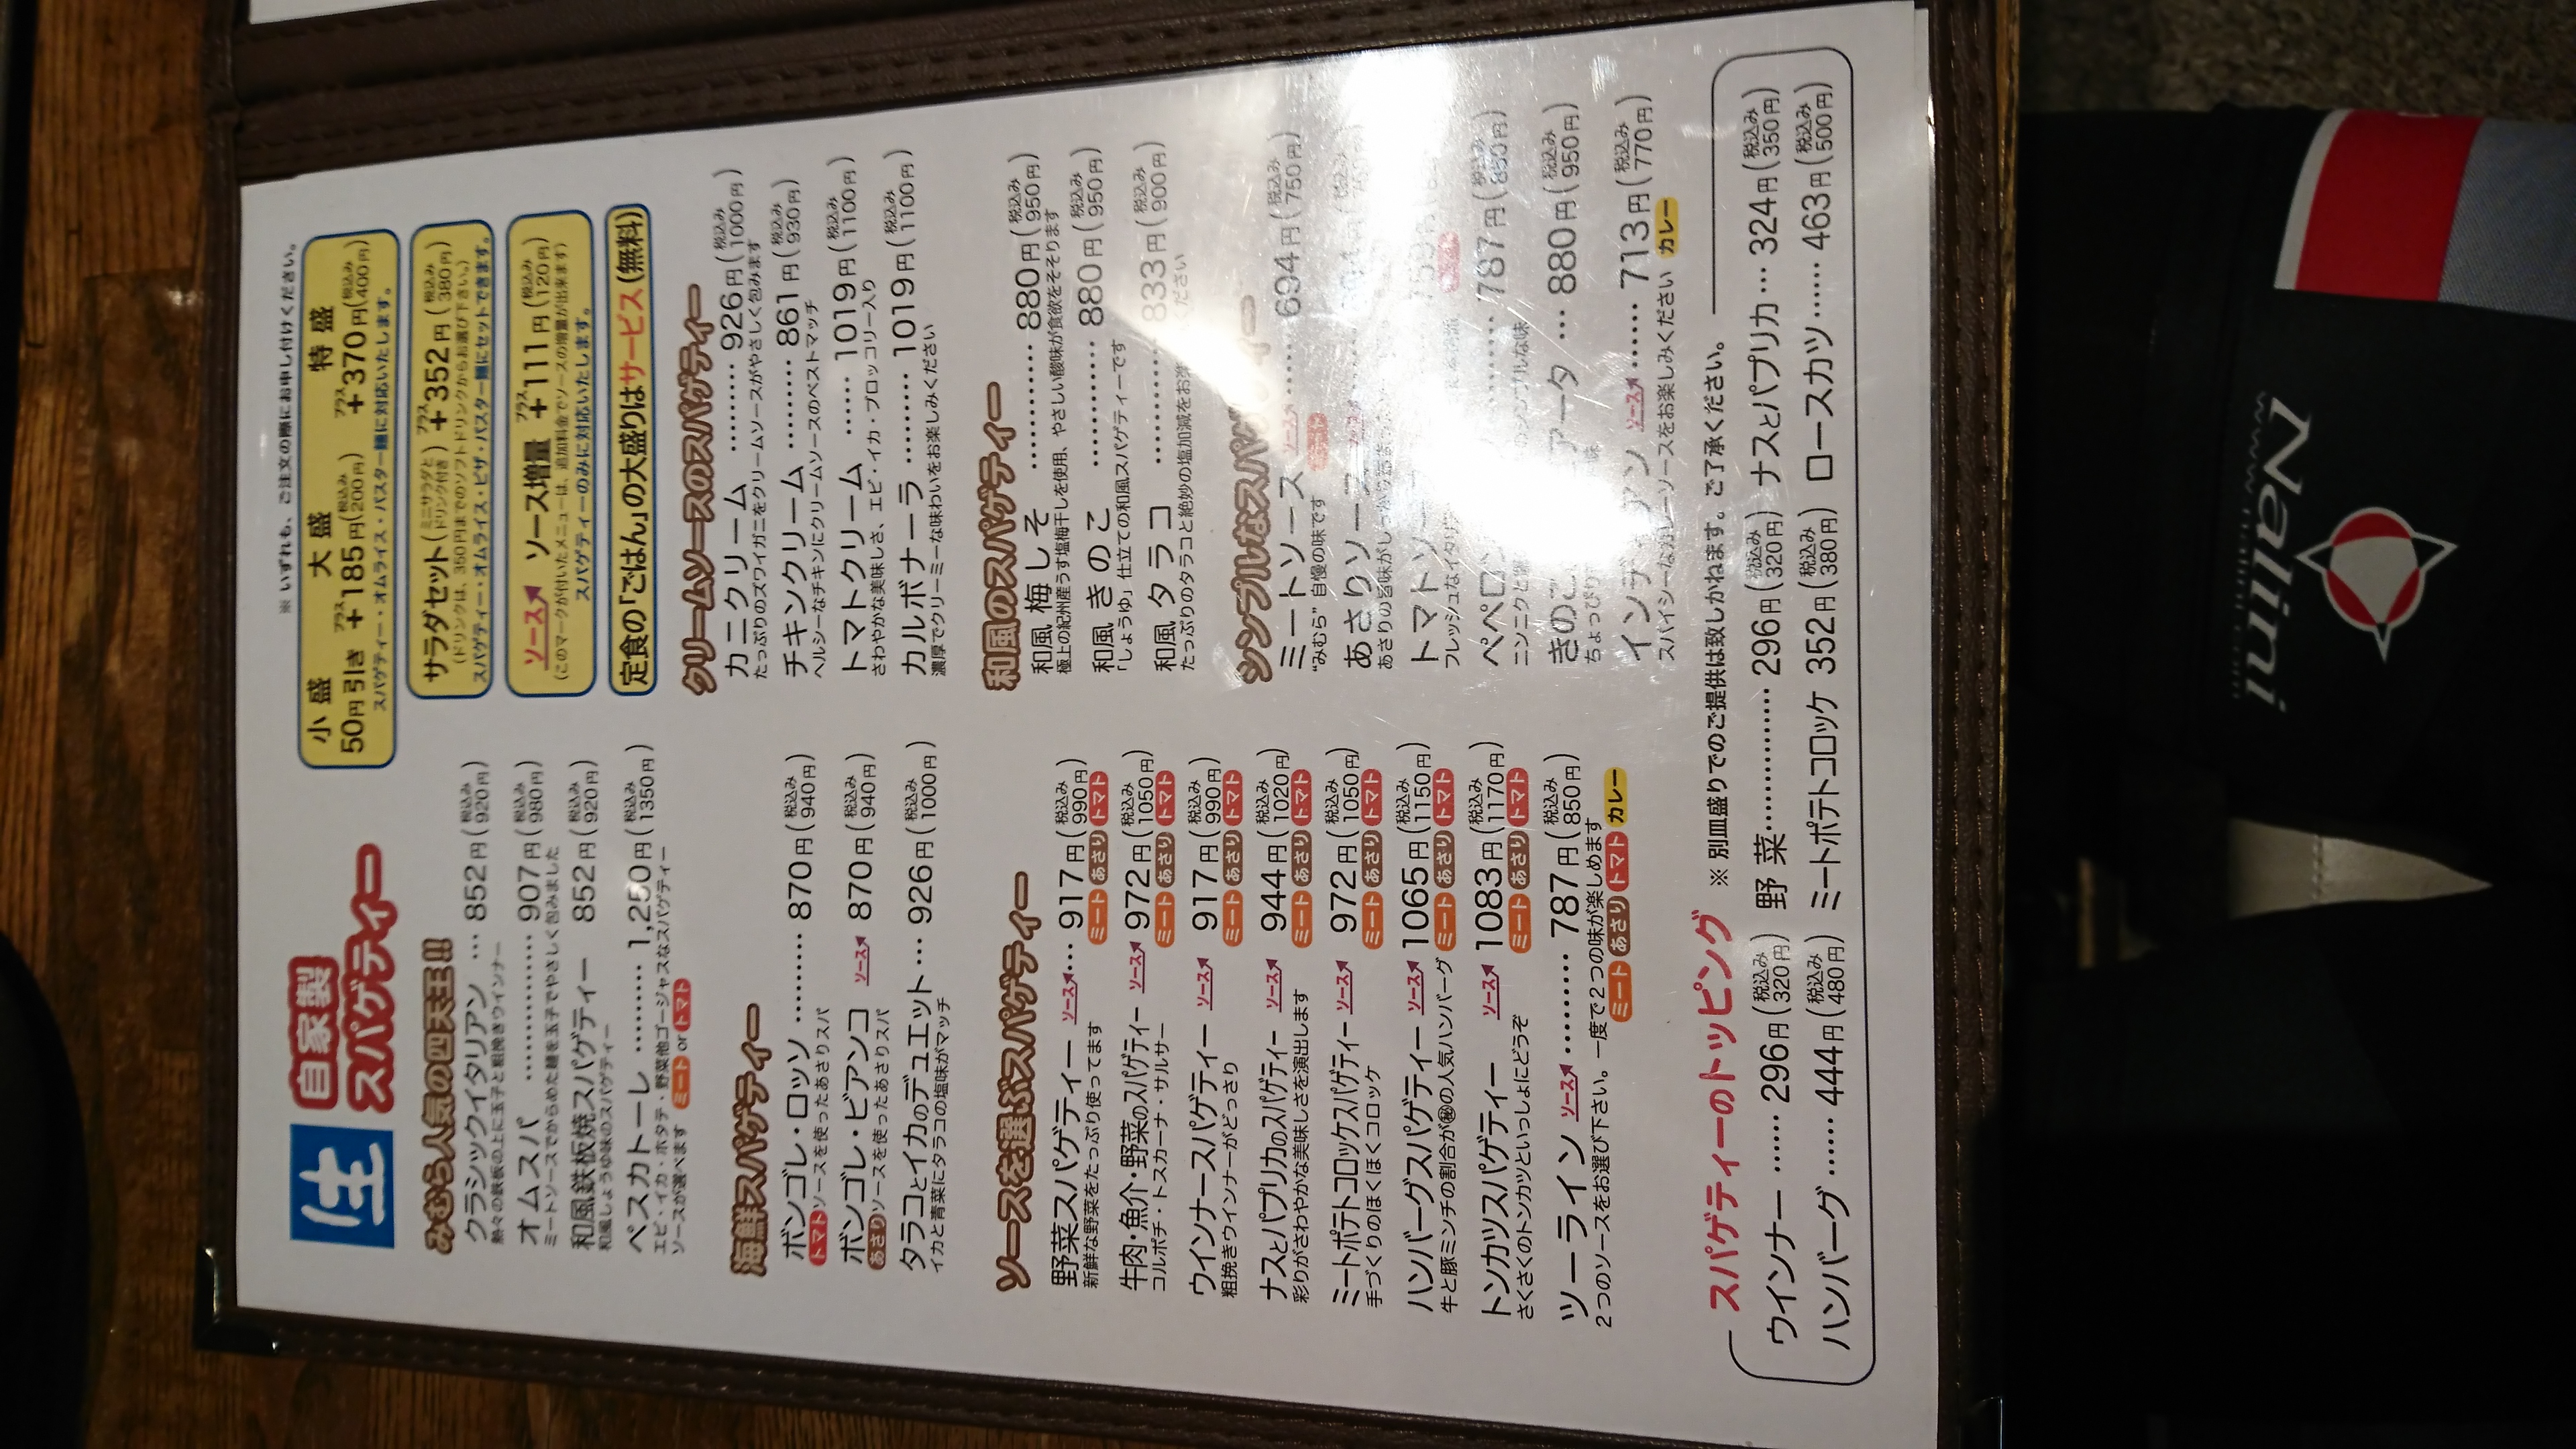 生 自家製
スパゲティー
みむら人気の四天王!!
クラシックイタリアン … 852円(税込み920円)
熱々の鉄板の上に玉子と粗挽きウインナー
オムスパ ………… 907円(税込み980円)
ミートソースでからめた麺を玉子でやさしく包みました
和風鉄板焼スパゲティー 852円(税込み920円)
和風しょうゆ味のスパゲティー
ペスカトーレ ……… 1,250円(税込み1350円)
エビ・イカ・ホタテ・野菜他ゴージャスなスパゲティー
ソースが選べます ミート or トマト
海鮮スパゲティー
ボンゴレ・ロッソ ……… 870円(税込み940円)
トマトソースを使ったあさりスパ
ボンゴレ・ビアンコ ソース↗ 870円(税込み940円)
あさりソースを使ったあさりスパ
タラコとイカのデュエット … 926円(税込み1000円)
イカと青菜にタラコの塩味がマッチ
ソースを選ぶスパゲティー
野菜スパゲティー ソース↗… 917円(税込み990円)
新鮮な野菜をたっぷり使ってます ミート あさり トマト
牛肉・魚介・野菜のスパゲティー ソース↗ 972円(税込み1050円)
コルポチ・トスカーナ・サルサー ミート あさり トマト
ウインナースパゲティー ソース↗ 917円(税込み990円)
粗挽きウインナーがどっさり ミート あさり トマト
ナスとパプリカのスパゲティー ソース↗ 944円(税込み1020円)
彩りがさわやかな美味しさを演出します ミート あさり トマト
ミートポテトコロッケスパゲティー ソース↗ 972円(税込み1050円)
手づくりのほくほくコロッケ ミート あさり トマト
ハンバーグスパゲティー ソース↗ 1065円(税込み1150円)
牛と豚ミンチの割合が㊙の人気ハンバーグ ミート あさり トマト
トンカツスパゲティー ソース↗ 1083円(税込み1170円)
さくさくのトンカツといっしょにどうぞ ミート あさり トマト
ツーライン ソース↗ ……… 787円(税込み850円)
2つのソースをお選び下さい。一度で2つの味が楽しめます
ミート あさり トマト カレー
※いずれも、ご注文の際にお申し付けください。
小盛 大盛 特盛
50円引き プラス+185円(税込み200円) プラス+370円(税込み400円)
スパゲティー・オムライス・パスター麺に対応いたします。
サラダセット(ミニサラダとドリンク付き) プラス+352円(税込み380円)
(ドリンクは、350円までのソフトドリンクからお選び下さい。)
スパゲティー・オムライス・ピザ・パスター麺にセットできます。
ソース↗ ソース増量 プラス+111円(税込み120円)
(このマークが付いたメニューは、追加料金でソースの増量が出来ます)
スパゲティーのみに対応いたします。
定食の「ごはん」の大盛りはサービス(無料)
クリームソースのスパゲティー
カニクリーム ……… 926円(税込み1000円)
たっぷりのズワイガニをクリームソースがやさしく包みます
チキンクリーム ……… 861円(税込み930円)
ヘルシーなチキンにクリームソースのベストマッチ
トマトクリーム …… 1019円(税込み1100円)
さわやかな美味しさ、エビ・イカ・ブロッコリー入り
カルボナーラ ……… 1019円(税込み1100円)
濃厚でクリーミーな味わいをお楽しみください
和風のスパゲティー
和風 梅しそ ………… 880円(税込み950円)
極上の紀州産うす塩梅干しを使用、やさしい酸味が食欲をそそります
和風 きのこ ………… 880円(税込み950円)
「しょうゆ」仕立ての和風スパゲティーです
和風 タラコ ………… 833円(税込み900円)
たっぷりのタラコと絶妙の塩加減をお楽 ください
シンプルなスパゲティー
ミートソース ソース↗ …… 694円(税込み750円)
“みむら”自慢の味です
あさりソース
あさりの旨味が
トマトソ
フレッシュなイタリア
ペペロン ……… 787円(税込み850円)
ニンニクと のシンプルな味
きのこ アータ … 880円(税込み950円)
ちょっぴり
インディアン ソース↗ …… 713円(税込み770円)
スパイシーなカレーソースをお楽しみください カレー
スパゲティーのトッピング ※別皿盛りでのご提供は致しかねます。ご了承ください。
ウインナー …… 296円(税込み320円) 野菜 ………… 296円(税込み320円) ナスとパプリカ … 324円(税込み350円)
ハンバーグ …… 444円(税込み480円) ミートポテトコロッケ 352円(税込み380円) ロースカツ …… 463円(税込み500円)
Nalini